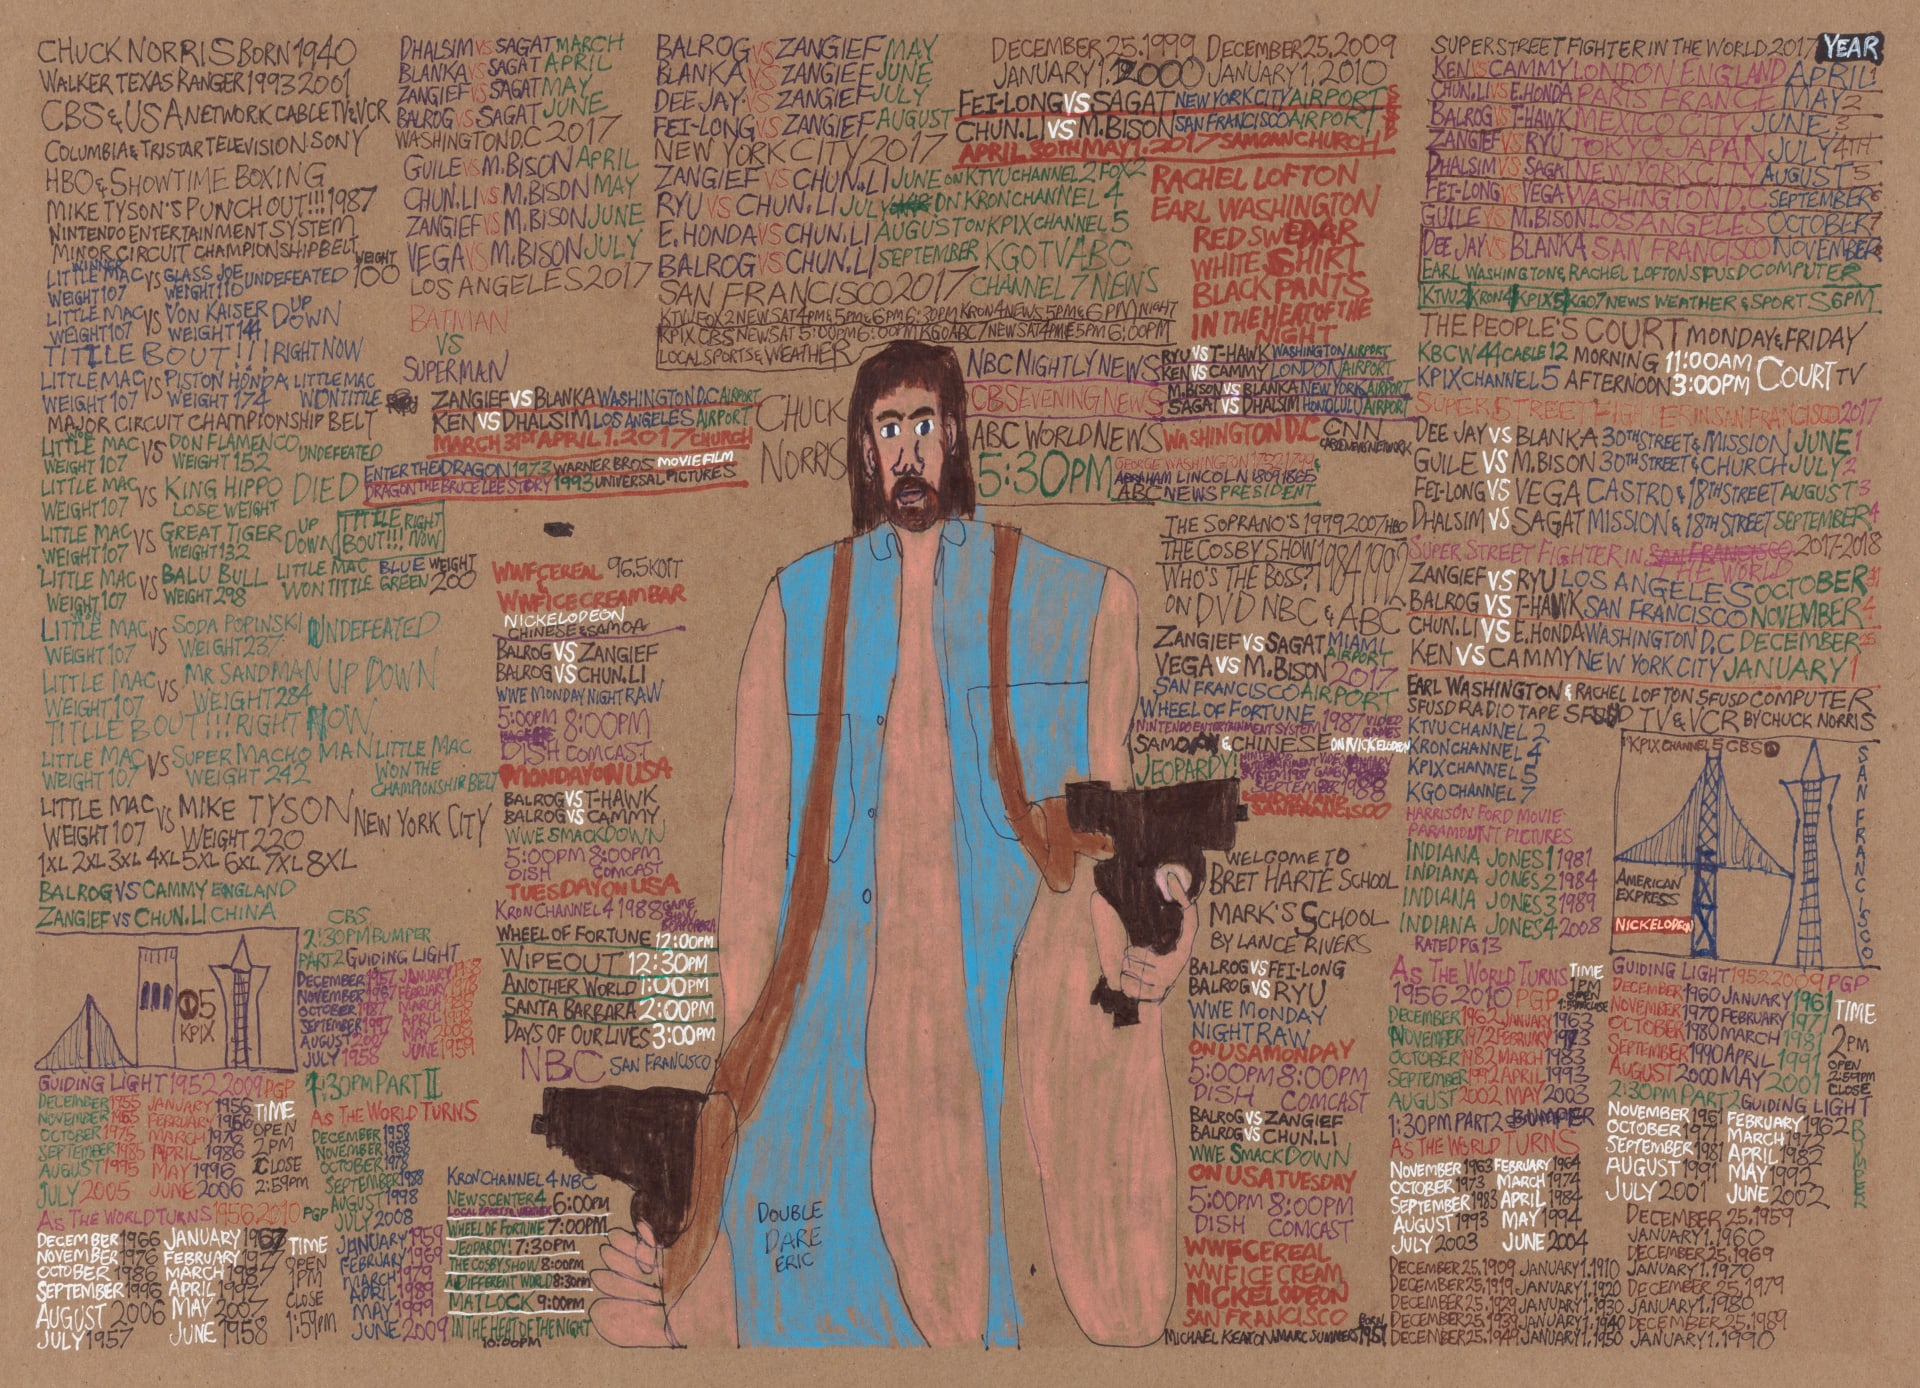 CHUCK NORRIS BORN 1940
WALKER TEXAS RANGER 1993 2001
CBS & USA NETWORK CABLE TV & VCR
COLUMBIA & TRISTAR TELEVISION SONY
HBO & SHOWTIME BOXING
MIKE TYSON'S PUNCH OUT!!! 1987
NINTENDO ENTERTAINMENT SYSTEM
MINOR CIRCUIT CHAMPIONSHIP BELT WEIGHT 100
WINNER
LITTLE MAC VS GLASS JOE UNDEFEATED
WEIGHT 107 WEIGHT 110
LITTLE MAC VS VON KAISER UP DOWN
WEIGHT 107 WEIGHT 144
TITTLE BOUT!!! RIGHT NOW
LITTLE MAC VS PISTON HONDA LITTLE MAC
WEIGHT 107 WEIGHT 174 WON TITTLE
MAJOR CIRCUIT CHAMPIONSHIP BELT
WON
LITTLE MAC VS DON FLAMENCO UNDEFEATED
WEIGHT 107 WEIGHT 152
LITTLE MAC VS KING HIPPO DIED
WEIGHT 107 LOSE WEIGHT
LITTLE MAC VS GREAT TIGER UP DOWN TITTLE RIGHT
WEIGHT 107 WEIGHT 132 BOUT!!! NOW
LITTLE MAC VS BALU BULL LITTLE MAC BLUE WEIGHT
WEIGHT 107 WEIGHT 298 WON TITTLE GREEN 200
WON
LITTLE MAC VS SODA POPINSKI UNDEFEATED
WEIGHT 107 WEIGHT 237
LITTLE MAC VS MR SANDMAN UP DOWN
WEIGHT 107 WEIGHT 284
TITTLE BOUT!!! RIGHT NOW
LITTLE MAC VS SUPER MACHO MAN LITTLE MAC
WEIGHT 107 WEIGHT 242 WON THE CHAMPIONSHIP BELT
LITTLE MAC VS MIKE TYSON NEW YORK CITY
WEIGHT 107 WEIGHT 220
1XL 2XL 3XL 4XL 5XL 6XL 7XL 8XL
BALROG VS CAMMY ENGLAND
ZANGIEF VS CHUN.LI CHINA
5
KPIX
CBS
2:30PM BUMPER
PART 2 GUIDING LIGHT
DECEMBER 1957 JANUARY 1958
NOVEMBER 1967 FEBRUARY 1968
OCTOBER 1987 MARCH
SEPTEMBER 1997 APRIL 1998
AUGUST 2007 MAY 2008
JULY 1958 JUNE 1959
GUIDING LIGHT 1952 2009 PGP
DECEMBER 1955 JANUARY 1956 TIME
NOVEMBER 1965 FEBRUARY 1966 OPEN
OCTOBER 1975 MARCH 1976 2PM
SEPTEMBER 1985 APRIL 1986 CLOSE
AUGUST 1995 MAY 1996 2:59PM
JULY 2005 JUNE 2006
AS THE WORLD TURNS 1956 2010 PGP
DECEMBER 1966 JANUARY 1967 TIME
NOVEMBER 1976 FEBRUARY 1977 OPEN
OCTOBER 1986 MARCH 1987 1PM
SEPTEMBER 1996 APRIL 1997 CLOSE
AUGUST 2006 MAY 2007 1:59PM
JULY 1957 JUNE 1958
1:30PM PART II
AS THE WORLD TURNS
DECEMBER 1958
NOVEMBER 1968
OCTOBER 1978
SEPTEMBER 1988
AUGUST 1998
JULY 2008
JANUARY 1959
FEBRUARY 1969
MARCH 1979
APRIL 1989
MAY 1999
JUNE 2009
DHALSIM VS SAGAT MARCH
BLANKA VS SAGAT APRIL
ZANGIEF VS SAGAT MAY
BALROG VS SAGAT JUNE
WASHINGTON D.C 2017
GUILE VS M.BISON APRIL
CHUN.LI VS M.BISON MAY
ZANGIEF VS M.BISON JUNE
VEGA VS M.BISON JULY
LOS ANGELES 2017
BATMAN
VS
SUPERMAN
ZANGIEF VS BLANKA WASHINGTON D.C AIRPORT
KEN VS DHALSIM LOS ANGELES AIRPORT
MARCH 31ST APRIL 1.2017 CHURCH
ENTER THE DRAGON 1973 WARNER BROS MOVIE FILM
DRAGON THE BRUCE LEE STORY 1993 UNIVERSAL PICTURES
WWF CEREAL 96.5 KOIT
&
WWF ICE CREAM BAR
NICKELODEON
CHINESE & SAMOA
BALROG VS ZANGIEF
BALROG VS CHUN.LI
WWE MONDAY NIGHT RAW
5:00PM 8:00PM
DISH COMCAST
MONDAY ON USA
BALROG VS T-HAWK
BALROG VS CAMMY
WWE SMACKDOWN
5:00PM 8:00PM
DISH COMCAST
TUESDAY ON USA
KRON CHANNEL 4 1988 GAME SHOW SOAP OPERA
WHEEL OF FORTUNE 12:00PM
WIPEOUT 12:30PM
ANOTHER WORLD 1:00PM
SANTA BARBARA 2:00PM
DAYS OF OUR LIVES 3:00PM
NBC SAN FRANCISCO
KRON CHANNEL 4 NBC
NEWSCENTER 4 6:00PM
LOCAL SPORTS & WEATHER
WHEEL OF FORTUNE 7:00PM
JEOPARDY! 7:30PM
THE COSBY SHOW 8:00PM
A DIFFERENT WORLD 8:30PM
MATLOCK 9:00PM
IN THE HEAT OF THE NIGHT
10:00PM
BALROG VS ZANGIEF MAY
BLANKA VS ZANGIEF JUNE
DEE JAY VS ZANGIEF JULY
FEI-LONG VS ZANGIEF AUGUST
NEW YORK CITY 2017
ZANGIEF VS CHUN.LI JUNE ON KTVU CHANNEL 2 FOX 2
RYU VS CHUN.LI JULY ON KRON CHANNEL 4
E.HONDA VS CHUN.LI AUGUST ON KPIX CHANNEL 5
BALROG VS CHUN.LI SEPTEMBER KGO TV ABC
SAN FRANCISCO 2017 CHANNEL 7 NEWS
KTVU FOX 2 NEWS AT 4PM & 5PM & 6PM 6:30PM KRON 4 NEWS 5PM & 6PM NIGHT
KPIX CBS NEWS AT 5:00PM 6:00PM KGO ABC 7 NEWS AT 4PM & 5PM 6:00PM
LOCAL SPORTS & WEATHER
CHUCK
NORRIS
DECEMBER 25.1999 DECEMBER 25,2009
JANUARY 1.2000 JANUARY 1,2010
FEI-LONG VS SAGAT NEW YORK CITY AIRPORT
CHUN.LI VS M.BISON SAN FRANCISCO AIRPORT
APRIL 30TH MAY 1.2017 SAMOAN CHURCH
RACHEL LOFTON
EARL WASHINGTON
RED SWEDAR
WHITE SHIRT
BLACK PANTS
IN THE HEAT OF THE
NIGHT
NBC NIGHTLY NEWS
CBS EVENING NEWS
ABC WORLD NEWS
5:30PM
RYU VS T-HAWK WASHINGTON AIRPORT
KEN VS CAMMY LONDON AIRPORT
M.BISON VS BLANKA NEW YORK AIRPORT
SAGAT VS DHALSIM HONOLULU AIRPORT
WASHINGTON D.C CNN
CABLE NEWS NETWORK
GEORGE WASHINGTON 1732 1799 &
ABRAHAM LINCOLN 1809 1865
ABC NEWS PRESIDENT
THE SOPRANO'S 1999 2007 HBO
THE COSBY SHOW 1984 1992
WHO'S THE BOSS?
ON DVD NBC & ABC
ZANGIEF VS SAGAT MIAMI AIRPORT
VEGA VS M.BISON 2017
SAN FRANCISCO AIRPORT
WHEEL OF FORTUNE
NINTENDO ENTERTAINMENT SYSTEM 1987 VIDEO GAMES
SAMOAN & CHINESE ON NICKELODEON
JEOPARDY!
SEPTEMBER 1988
SAN FRANCISCO
WELCOME TO
BRET HARTE SCHOOL
MARK'S SCHOOL
BY LANCE RIVERS
BALROG VS FEI-LONG
BALROG VS RYU
WWE MONDAY
NIGHT RAW
ON USA MONDAY
5:00PM 8:00PM
DISH COMCAST
BALROG VS ZANGIEF
BALROG VS CHUN.LI
WWE SMACKDOWN
ON USA TUESDAY
5:00PM 8:00PM
DISH COMCAST
WWF CEREAL
WWF ICE CREAM
NICKELODEON
SAN FRANCISCO
MICHAEL KEATON & MARC SUMMERS BORN 1951
DOUBLE
DARE
ERIC
SUPER STREET FIGHTER IN THE WORLD 2017 YEAR
KEN VS CAMMY LONDON ENGLAND APRIL 1
CHUN.LI VS E.HONDA PARIS FRANCE MAY 2
BALROG VS T-HAWK MEXICO CITY JUNE 3
ZANGIEF VS RYU TOKYO JAPAN JULY 4TH
DHALSIM VS SAGAT NEW YORK CITY AUGUST 5
FEI-LONG VS VEGA WASHINGTON D.C SEPTEMBER 6
GUILE VS M.BISON LOS ANGELES OCTOBER 7
DEE JAY VS BLANKA SAN FRANCISCO NOVEMBER 8
EARL WASHINGTON & RACHEL LOFTON SFUSD COMPUTER
KTVU 2 KRON 4 KPIX 5 KGO 7 NEWS WEATHER & SPORTS 6PM
THE PEOPLE'S COURT MONDAY & FRIDAY
KBCW 44 CABLE 12 MORNING 11:00AM COURT TV
KPIX CHANNEL 5 AFTERNOON 3:00PM
SUPER STREET FIGHTER IN SAN FRANCISCO 2017
DEE JAY VS BLANKA 30TH STREET & MISSION JUNE 1
GUILE VS M.BISON 30TH STREET & CHURCH JULY 2
FEI-LONG VS VEGA CASTRO & 18TH STREET AUGUST 3
DHALSIM VS SAGAT MISSION & 18TH STREET SEPTEMBER 4
SUPER STREET FIGHTER IN SAN FRANCISCO 2017-2018
THE WORLD
ZANGIEF VS RYU LOS ANGELES OCTOBER 31
BALROG VS T-HAWK SAN FRANCISCO NOVEMBER 4
CHUN.LI VS E.HONDA WASHINGTON D.C DECEMBER 25
KEN VS CAMMY NEW YORK CITY JANUARY 1
EARL WASHINGTON & RACHEL LOFTON SFUSD COMPUTER
SFUSD RADIO TAPE SFUSD TV & VCR BY CHUCK NORRIS
KTVU CHANNEL 2
KRON CHANNEL 4
KPIX CHANNEL 5
KGO CHANNEL 7
HARRISON FORD MOVIE
PARAMOUNT PICTURES
INDIANA JONES 1 1981
INDIANA JONES 2 1984
INDIANA JONES 3 1989
INDIANA JONES 4 2008
RATED PG 13
KPIX CHANNEL 5 CBS
AMERICAN
EXPRESS
NICKELODEON
SAN FRANCISCO
AS THE WORLD TURNS TIME
1956 2010 PGP 1PM OPEN
DECEMBER 1962 JANUARY 1963
NOVEMBER 1972 FEBRUARY 1973
OCTOBER 1982 MARCH 1983
SEPTEMBER 1992 APRIL 1993
AUGUST 2002 MAY 2003
1:30PM PART 2 BUMPER
AS THE WORLD TURNS
NOVEMBER 1963 FEBRUARY 1964
OCTOBER 1973 MARCH 1974
SEPTEMBER 1983 APRIL 1984
AUGUST 1993 MAY 1994
JULY 2003 JUNE 2004
DECEMBER 25.1909 JANUARY 1.1910
DECEMBER 25.1919 JANUARY 1.1920
DECEMBER 25.1929 JANUARY 1.1930
DECEMBER 25.1939 JANUARY 1.1940
DECEMBER 25.1949 JANUARY 1.1950
GUIDING LIGHT 1952 2009 PGP
DECEMBER 1960 JANUARY 1961 TIME
NOVEMBER 1970 FEBRUARY 1971
OCTOBER 1980 MARCH 1981 2PM
SEPTEMBER 1990 APRIL 1991 OPEN
AUGUST 2000 MAY 2001 2:59PM CLOSE
2:30PM PART 2 GUIDING LIGHT
BUMPER
NOVEMBER 1961 FEBRUARY 1962
OCTOBER 1971 MARCH 1972
SEPTEMBER 1981 APRIL 1982
AUGUST 1991 MAY 1992
JULY 2001 JUNE 2002
DECEMBER 25,1959
JANUARY 1.1960
DECEMBER 25.1969
JANUARY 1.1970
DECEMBER 25.1979
JANUARY 1.1980
DECEMBER 25.1989
JANUARY 1.1990